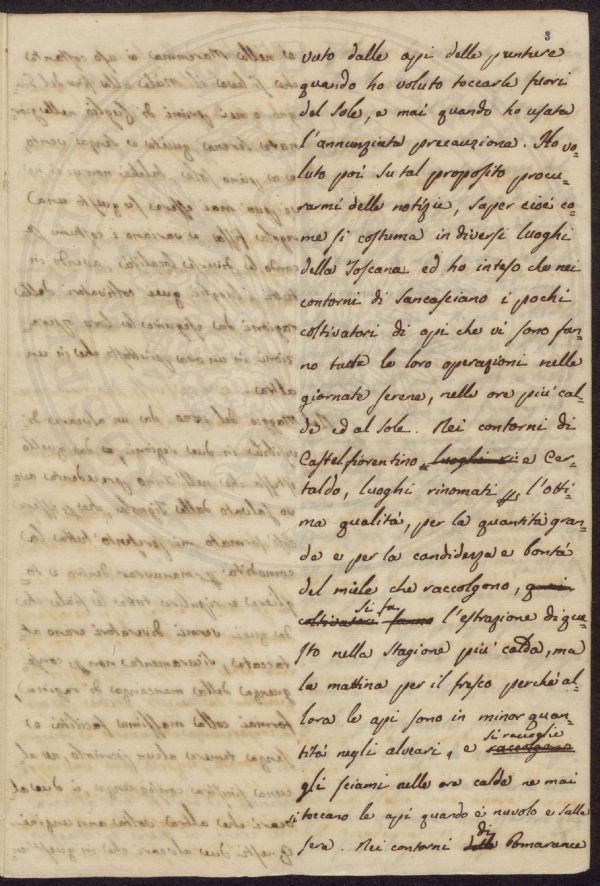 3
vuto dalle api delle punture
quando ho voluto toccarle fuori
del sole, e mai quando ho usata
l'annunziata precauzione. Ho vo-
luto poi su tal proposito procu-
rarmi delle notizie, saper cioè co-
me si costuma in diversi luoghi
della Toscana ed ho inteso che nei
contorni di Sancasciano i pochi
coltivatori di api che vi sono fan-
no tutte le loro operazioni nelle
giornate serene, nelle ore più cal-
de ed al sole. Nei contorni di
Castelfiorentino, luoghi ri e Cer-
taldo, luoghi rinomati p l'otti-
ma qualità, per la quantità gran-
de e per la candidezza e bontà
del miele che raccolgono, quei
si fa
coltivatori fanno l'estrazione di que-
sto nella stagione più calda, ma
la mattina per il fresco perché al-
lora le api sono in minor quan-
tità negli alveari, e
si raccoglie
raccolgono
gli sciami nelle ore calde ne mai
si toccano le api quando è nuvolo e sulla
sera. Nei contorni
di
Pomarance